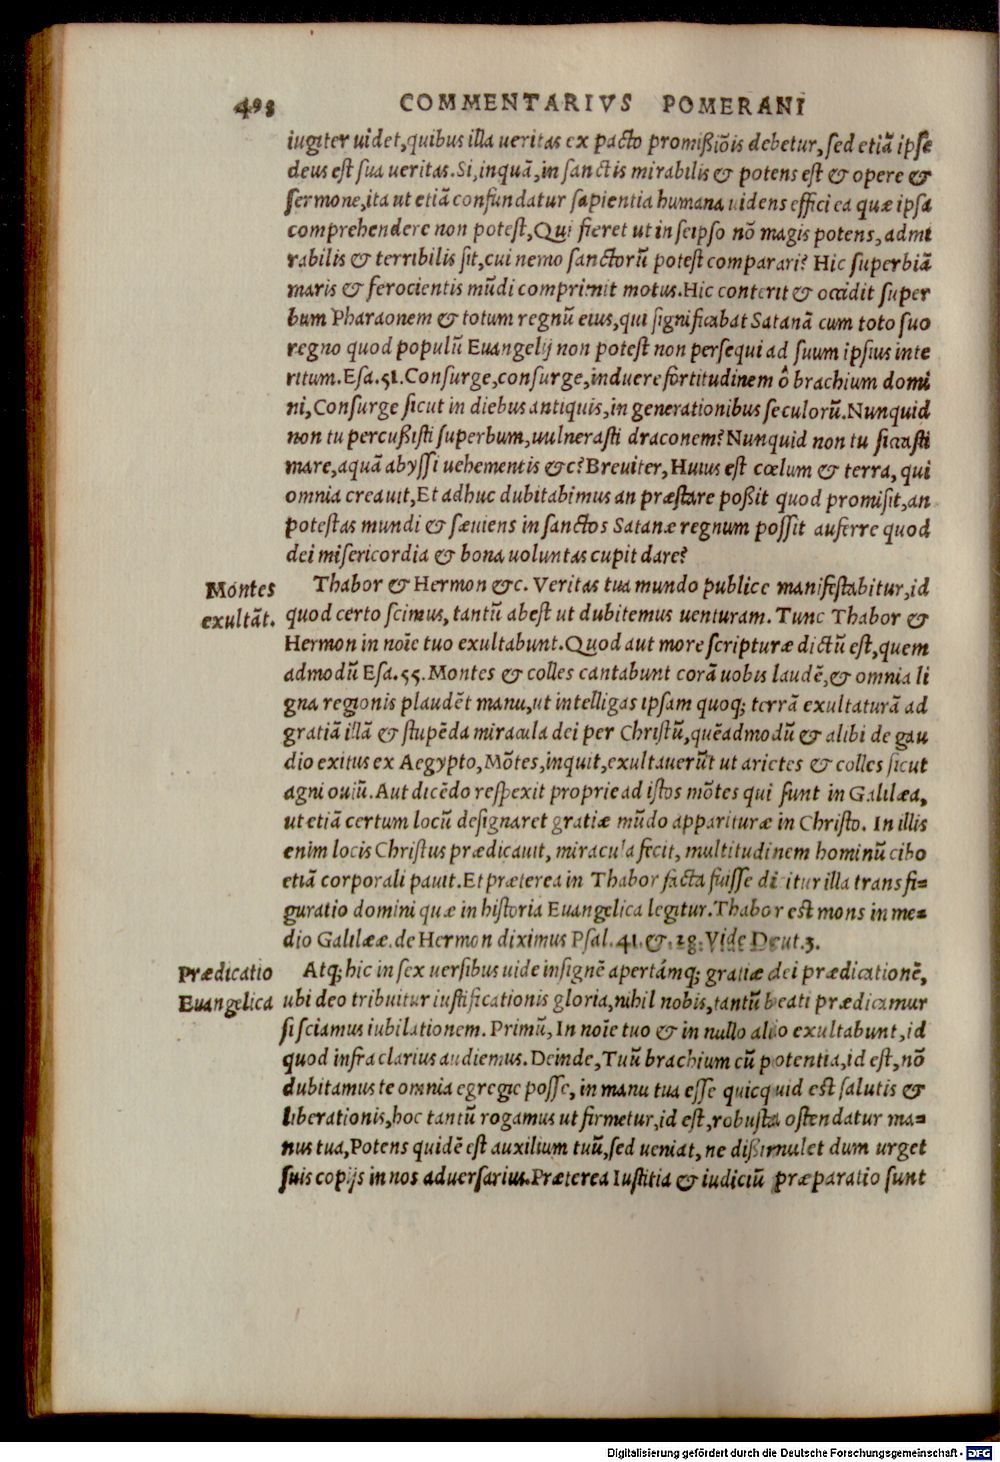 498 COMMENTARIVS POMERANI
iugiter uidet,quibus illa ueritas ex pacto promißiōis debetur,sed etiā ipse
deus est sua ueritas.Si,inquā,in sanctis mirabilis & potens est & opere &
sermone,ita ut etiā confundatur sapientia humana uidens effici ea quæ ipsa
comprehendere non potest,Qui fieret ut in seipso nō magis potens,admi
rabilis & terribilis sit,cui nemo sanctorū potest comparari? Hic superbiā
maris & ferocientis mūdi comprimit motus.Hic conterit & occidit super
bum Pharaonem & totum regnū eius,qui significabat Satanā cum toto suo
regno quod populū Euangelij non potest non persequi ad suum ipsius inte
ritum.Esa.51.Consurge,consurge,induere fortitudinem ô brachium domi
ni,Consurge sicut in diebus antiquis,in generationibus seculorū.Nunquid
non tu percußisti superbum,uulnerasti draconem?Nunquid non tu siccasti
mare,aquā abyssi uehementis &c?Breuiter,Huius est cœlum & terra,qui
omnia creauit,Et adhuc dubitabimus an præstare poßit quod promisit,an
potestas mundi & sæuiens in sanctos Satanæ regnum possit auferre quod
dei misericordia & bona uoluntas cupit dare?
Montes
exultāt.
Thabor & Hermon &c. Veritas tua mundo publice manifestabitur,id
quod certo scimus,tantū abest ut dubitemus uenturam. Tunc Thabor &
Hermon in noīe tuo exultabunt.Quod aut more scripturæ dictū est,quem
admodū Esa.55.Montes & colles cantabunt corā uobis laudē,& omnia li
gna regionis plaudēt manu,ut intelligas ipsam quoq; terrā exultaturā ad
gratiā illā & stupēda miracula dei per Christū,quēadmodū & alibi de gau
dio exitus ex Aegypto,Mōtes,inquit,exultauerūt ut arietes & colles sicut
agni ouiū.Aut dicēdo respexit proprie ad istos mōtes qui sunt in Galilæa,
ut etiā certum locū designaret gratiæ mūdo apparituræ in Christo. In illis
enim locis Christus prædicauit, miracula fecit, multitudinem hominū cibo
etiā corporali pauit.Et præterea in Thabor facta fuisse dicitur illa transfi=
guratio domini quæ in historia Euangelica legitur.Thabor est mons in me=
dio Galilææ.de Hermon diximus Psal.41.&.28.Vide Deut.3.
Prædicatio
Euangelica
Atq; hic in sex uersibus uide insignē apertámq; gratiæ dei prædicationē,
ubi deo tribuitur iustificationis gloria,nihil nobis,tantū beati prædicamur
si sciamus iubilationem. Primū,In noīe tuo & in nullo alio exultabunt,id
quod infra clarius audiemus. Deinde,Tuū brachium cū potentia,id est,nō
dubitamus te omnia egregie posse,in manu tua esse quicquid est salutis &
liberationis,hoc tantū rogamus ut firmetur,id est,robusta ostendatur ma=
nus tua,Potens quidē est auxilium tuū,sed ueniat,ne dißimulet dum urget
suis copijs in nos aduersarius.Præterea Iustitia & iudiciū præparatio sunt
Digitalisierung gefördert durch die Deutsche Forschungsgemeinschaft - DFG